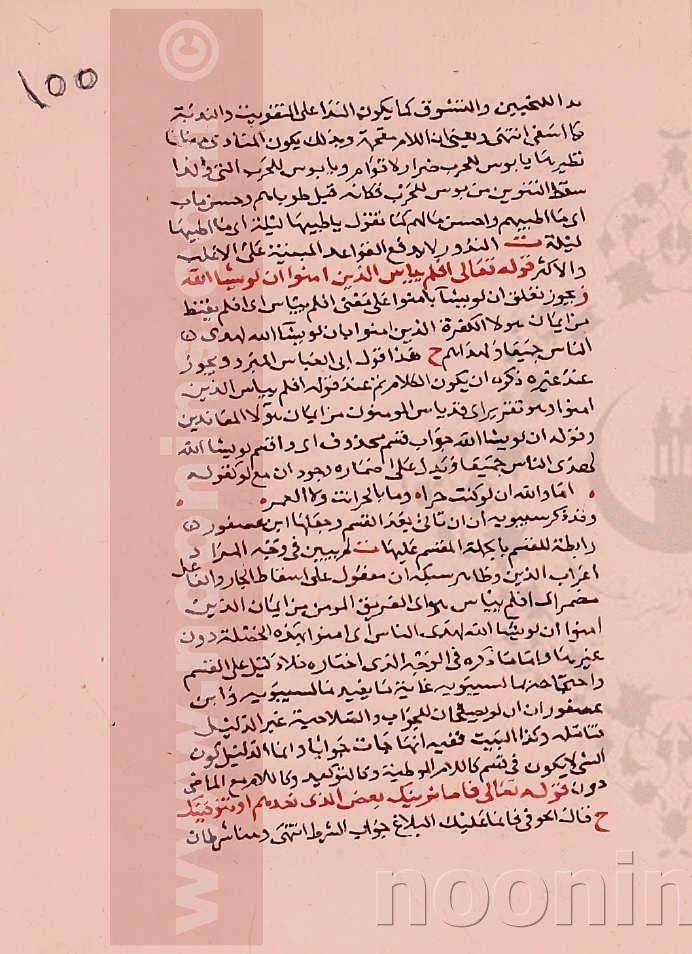 ١٥٥
التحنين والتشوق كما يكون الندا على التفويت والندبة
يا اسفى انتهى ويعنى ان اللام مقحمة وبذلك يكون المنادى مضافا
نظيرها يا بوس للحرب ضرار لاقوام ويا بوس للحرب التي
سقط التنوين من بوس للحرب فكانه قيل طوباهم وحسن مآب
اي ما اطيبهم واحسن مآلهم كما تقول يا طيبها ليلة اي ما اطيبها
ليلة ت الندور لا يدفع القواعد المبنية على الاغلب
والاكثر قوله تعالى افلم ييأس الذين امنوا ان لو يشا الله
ويجوز تعلق ان لو يشآ بآمنوا على معنى افلم ييأس اي افلم يقنط
من ايمان هولا الكفرة الذين امنوا بان لو يشآ الله لهدى
الناس جميعا ولهداهم ح هذا قول ابي العباس المبرد ويجوز
عندي غيره ذكره ان يكون الكلام تم عند قوله افلم ييأس الذين
امنوا وهو تقرير اي قد يأس المومنون من ايمان هولا المعاندين
وقوله ان لو يشا الله جواب قسم محذوف اي واقسم لو يشا الله
لهدى الناس جميعا ويدل على اضماره وجود ان مع لو كقوله
اما والله ان لو كنت حرا وما بالحر انت ولا العتيق
وقد ذكر سيبويه ان ان تاتي بعد القسم وجعلها ابن عصفور
رابطة للقسم بالجملة المقسم عليها ت لم يبين في وجه المبرد
اعراب الذين وظاهر سبكه ان مفعول على اسقاط الجار والفاعل
مضمر اي افلم ييأس هو اي الفريق المومن من ايمان الذين
امنوا ان لو يشا الله لهدى الناس اي امنوا بهذه الخصلة دون
غيرها واما ما ذكره في الوجه الذي اختاره فلا دليل على القسم
واحتجاجه بما لسيبويه غاية ما يفيد ما لسيبويه وابن
عصفور ان ان لو يصلحان للجواب والصلاحية غير الدليل
فتامله وكذا البيت ففيه انها جات جوابا وانما الدليل كون
الشي لا يكون في قسم كاللام الموطئة وكالتوكيد وكاللام مع الماضي
دون قوله تعالى فاما نرينك بعض الذي نعدهم او نتوفينك
ح قال الحوفي فانما عليك البلاغ جواب الشرط انتهى وهنا شرطان